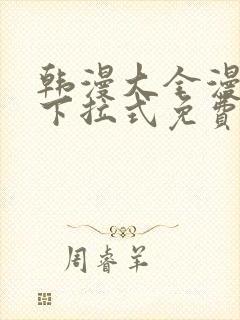 韩漫大全漫
下拉式免费
周睿羊